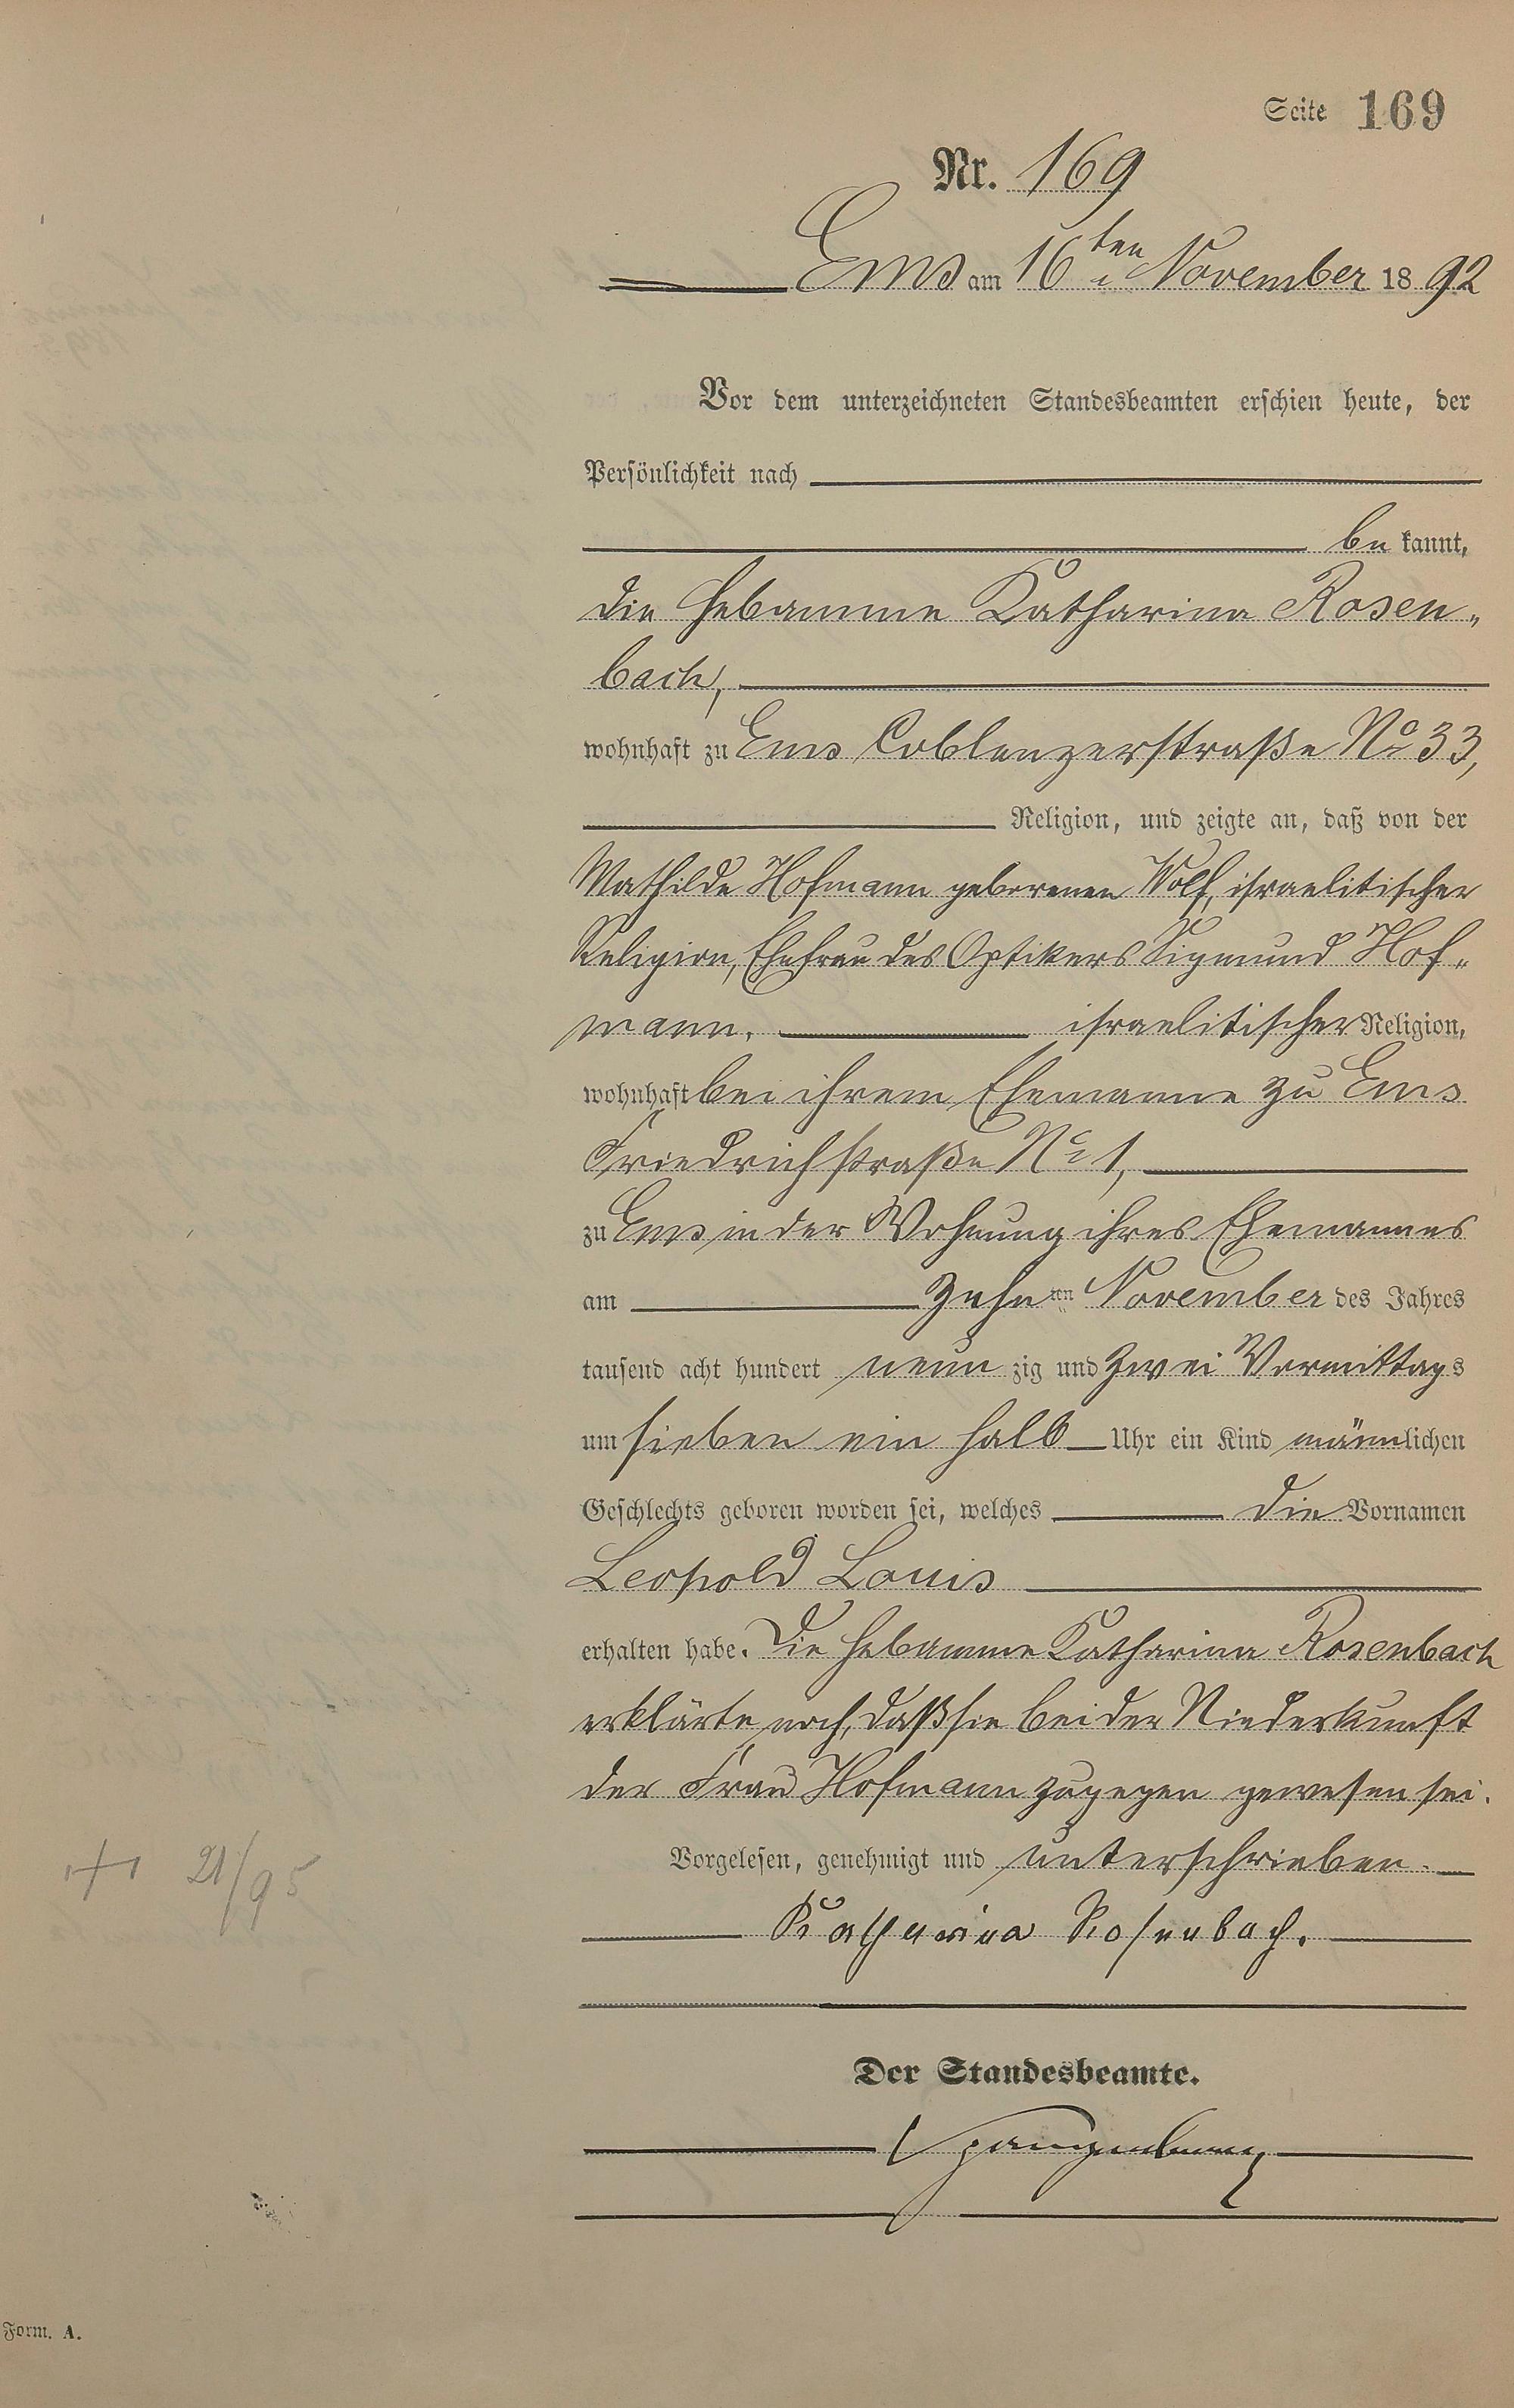 Seite 169
Nr. 169
Ems am 16ten November 1892
Vor dem unterzeichneten Standesbeamten erschien heute, der
Persönlichkeit nach
be kannt,
die Hebamme Katharina Rosen„
bach,
wohnhaft zu Ems Coblenzerstraße No 33,
Religion, und zeigte an, daß von der
Mathilde Hofmann geborenen Wolf, israelitischer
Religion, Ehefrau des Optikers Sigmund Hof„
mann, israelitischer Religion,
wohnhaft bei ihrem Ehemanne zu Ems
Friedrichstraße No 1,
zu Ems in der Wohnung ihres Ehemannes
am zehnten November des Jahres
tausend acht hundert neun zig und zwei Vormittags
um sieben ein halb Uhr ein Kind männlichen
Geschlechts geboren worden sei, welches die Vornamen
Leopold Louis
erhalten habe. Die Hebamme Katharina Rosenbach
erklärte noch, daß sie bei der Niederkunft
der Frau Hofmann zugegen gewesen sei.
Vorgelesen, genehmigt und unterschrieben.
+ 21/95
Katharina Rosenbach.
Der Standesbeamte.
Form. A.